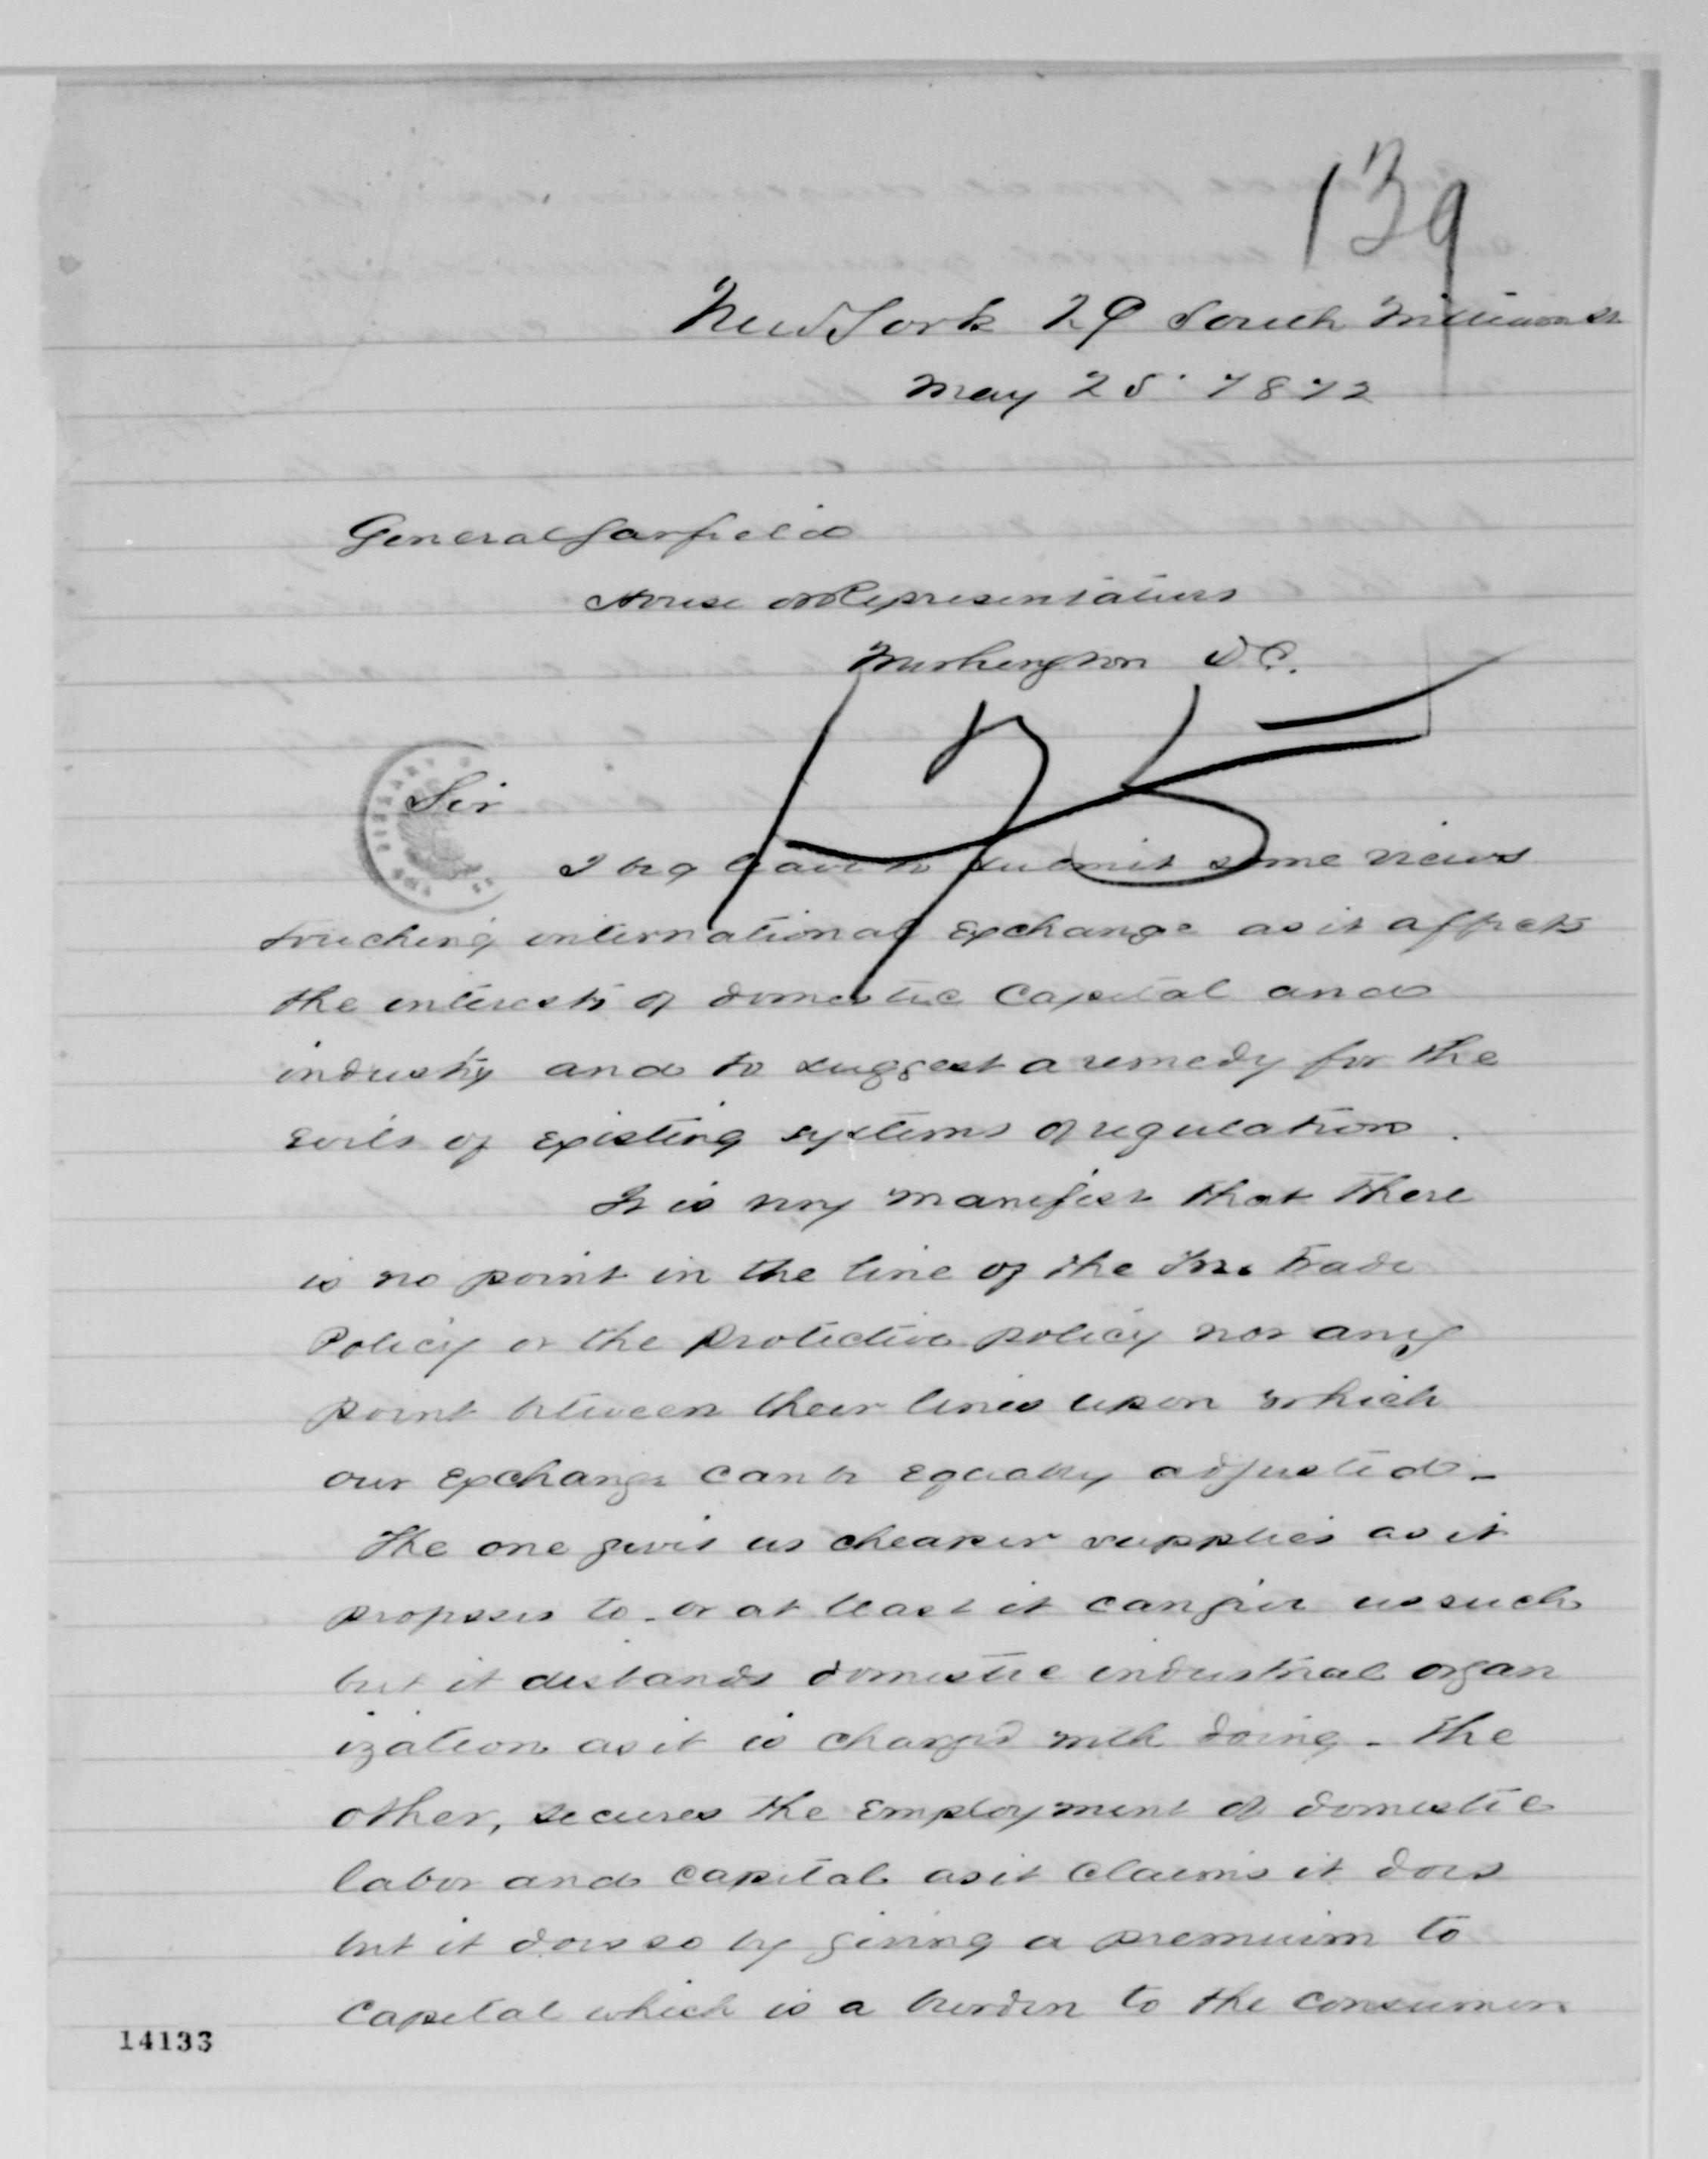 139
New York 29 South William St
May 25. 1872
General Garfield
House of Representatives
Washington D.C.
Sir
I beg leave to submit some views
touching international Exchange as it affects
the interests of domestic Capital and
industry and to suggest a remedy for the
Evils of Existing systems of regulation.
It is very manifest that there
is no point in the line of the Free Trade
Policy or the Protective policy nor any
point between their lines upon which
our Exchange can be Equably adjusted -
The one gives us cheaper supplies as it
proposes to - or at least it can give us such
but it disbands domestic industrial organ
ization as it is charged with doing - The
other, secures the Employment of domestic
labor and capital as it Claims it does
but it does so by giving a premium to
Capital which is a burden to the consumer
14133